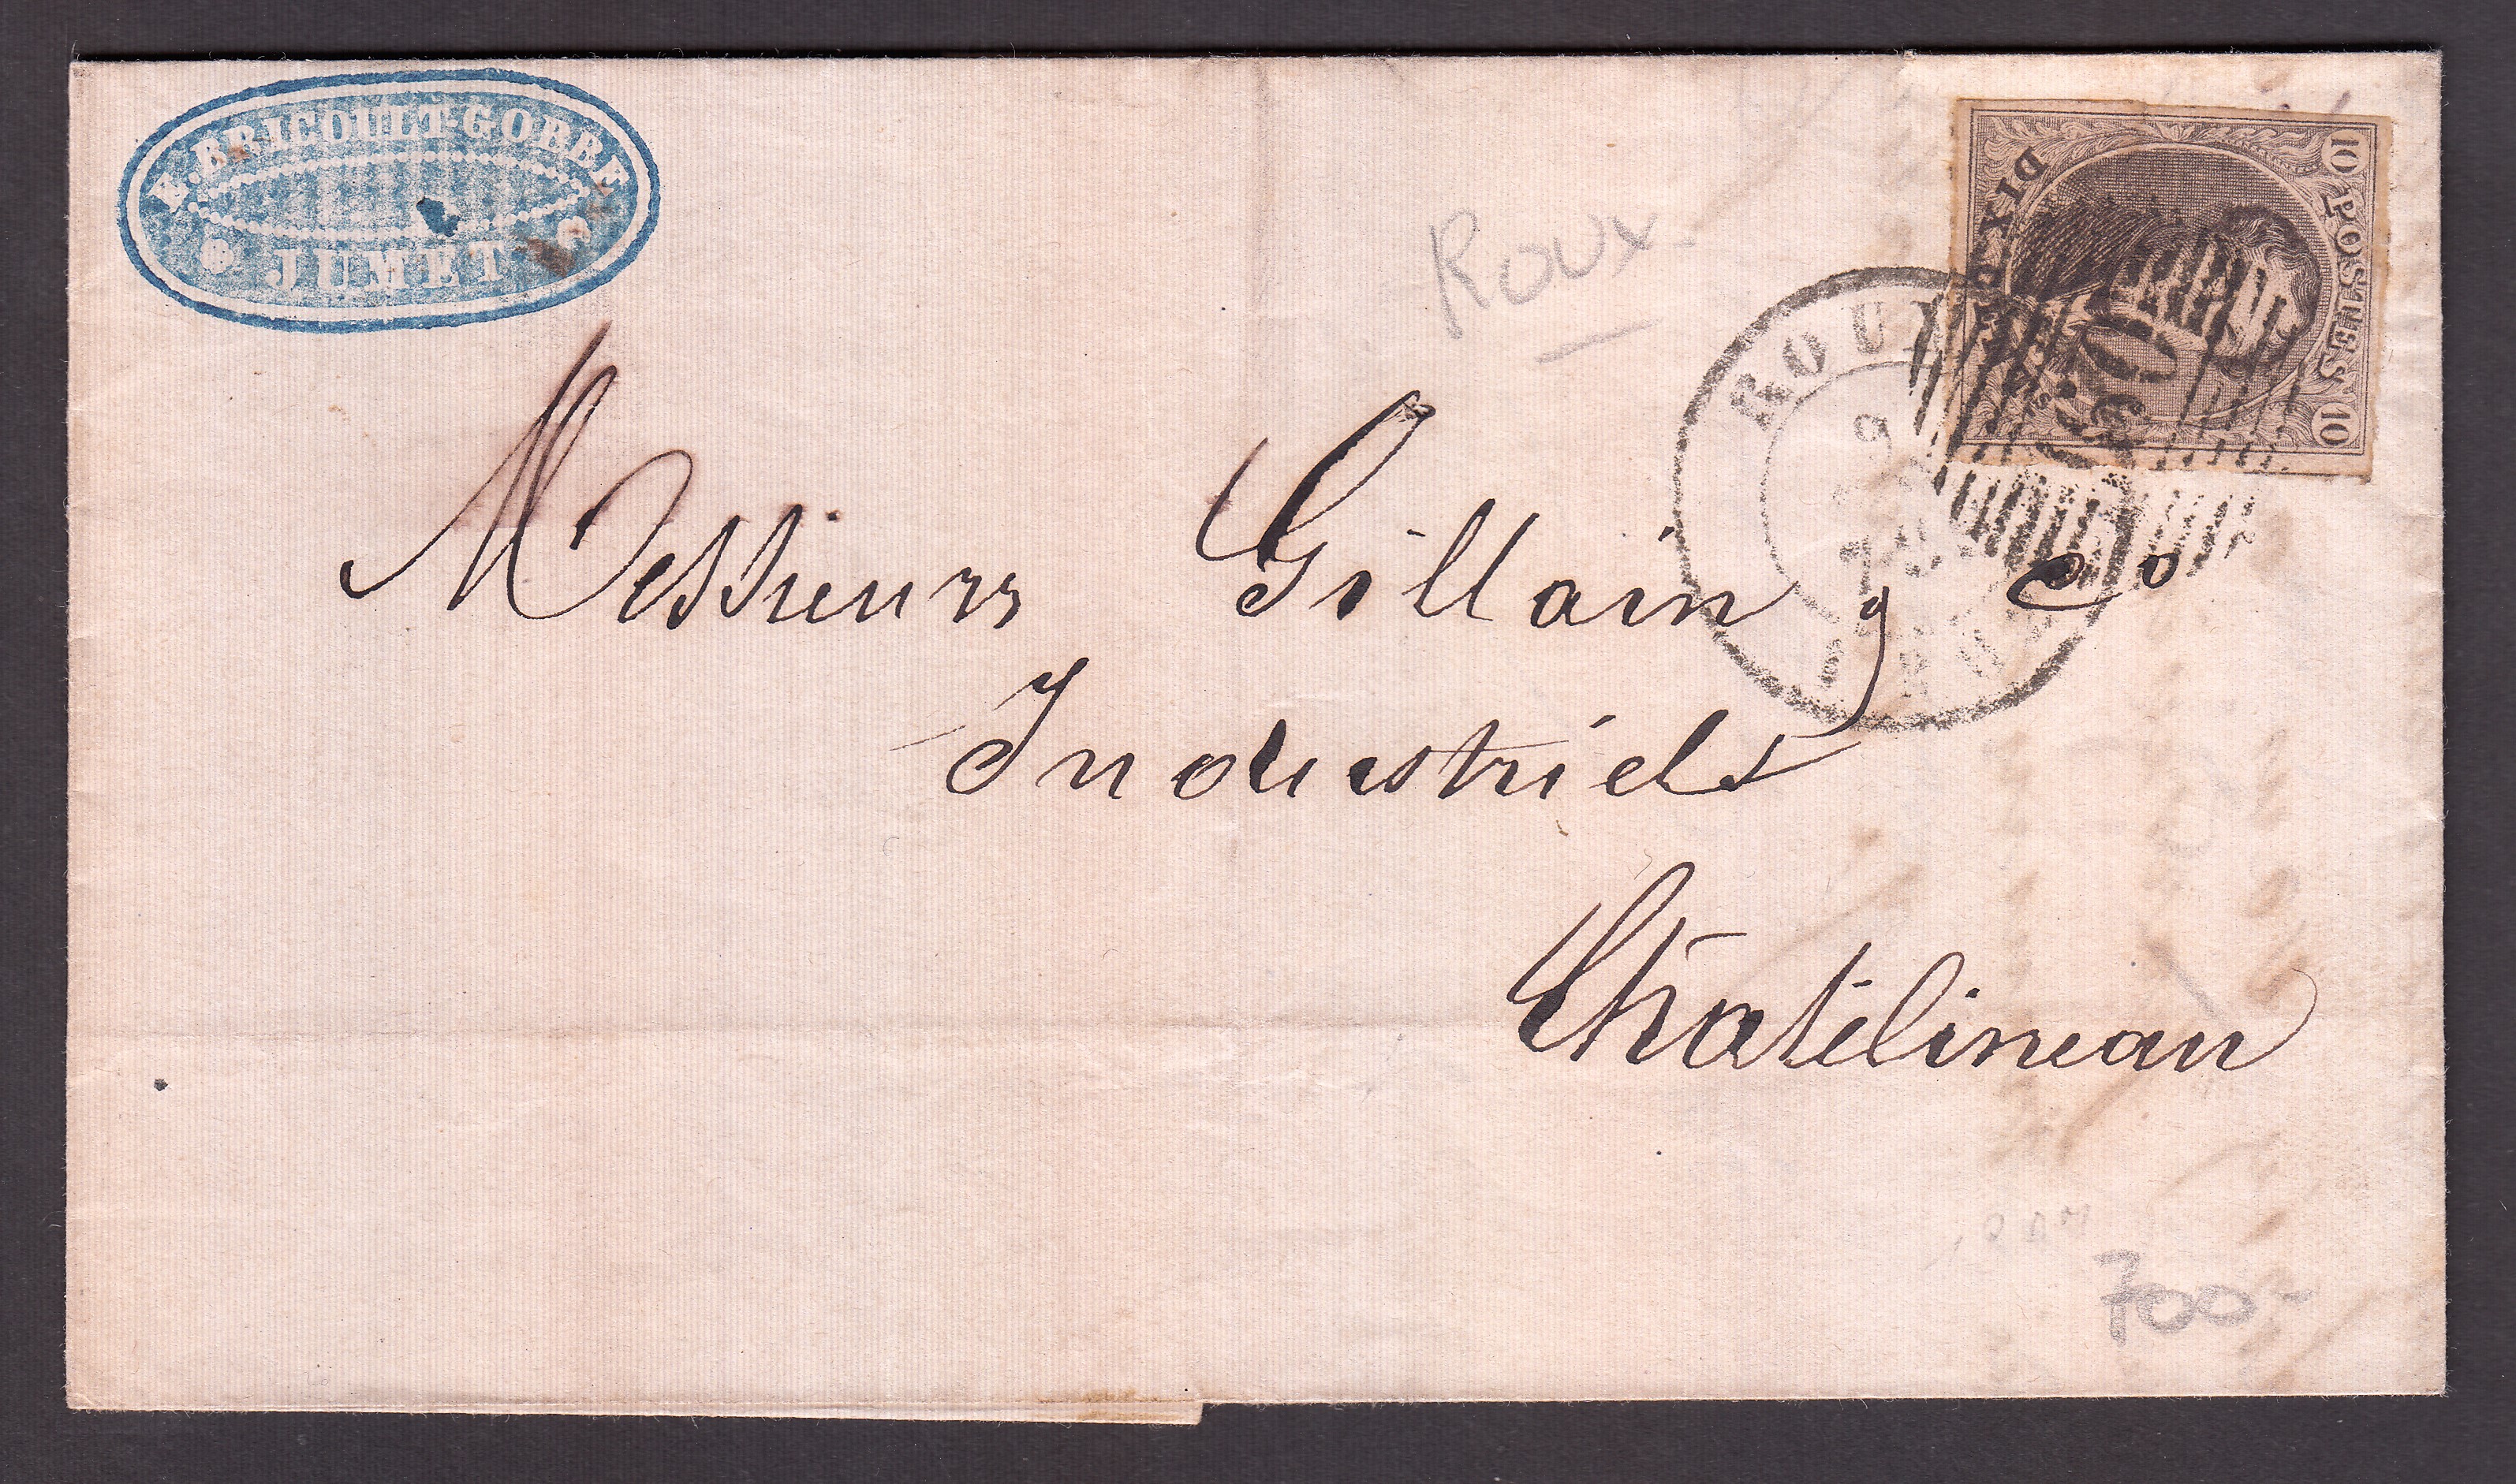 BRICOULT-GOBBE
JUMET
Roux
10 POSTES 10
DIX
ROUX
9
Messieurs Gillain & Co
Industriels
Châtelineau
700-